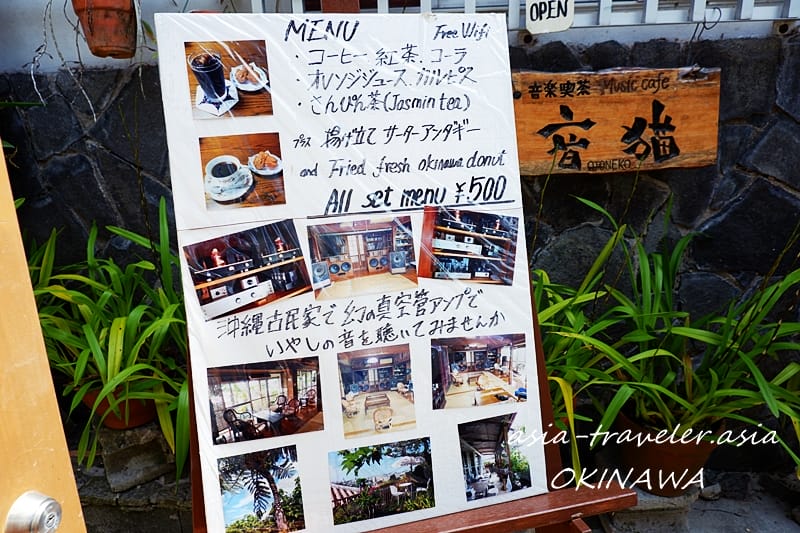 MENU Free Wifi
・コーヒー、紅茶、コーラ
・オレンジジュース、カルピス
・さんぴん茶(Jasmin tea)
プラス 揚げ立て サーターアンダギー
and Fried fresh okinawa donut
All set menu ¥500
沖縄古民家で幻の真空管アンプで
いやしの音を聴いてみませんか
OPEN
音楽喫茶 Music cafe
音猫
OTONEKO
asia-traveler.asia
OKINAWA